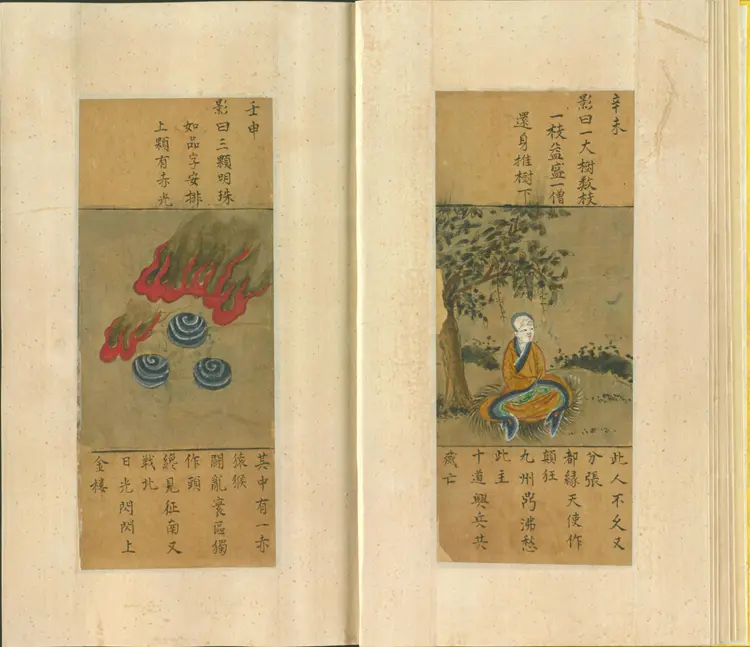 辛未
影曰一大樹数枝
一枝益盛一僧
還身推樹下
此人不久又
分張
都緣天使作
顛狂
九州鼎沸愁
此主
十道興兵共
滅亡
壬申
影曰三顆明珠
如品字安排
上顆有赤光
其中有一赤
猿猴
閙亂寰區獨
作頭
總見征南又
戰北
日光閃閃上
金樓